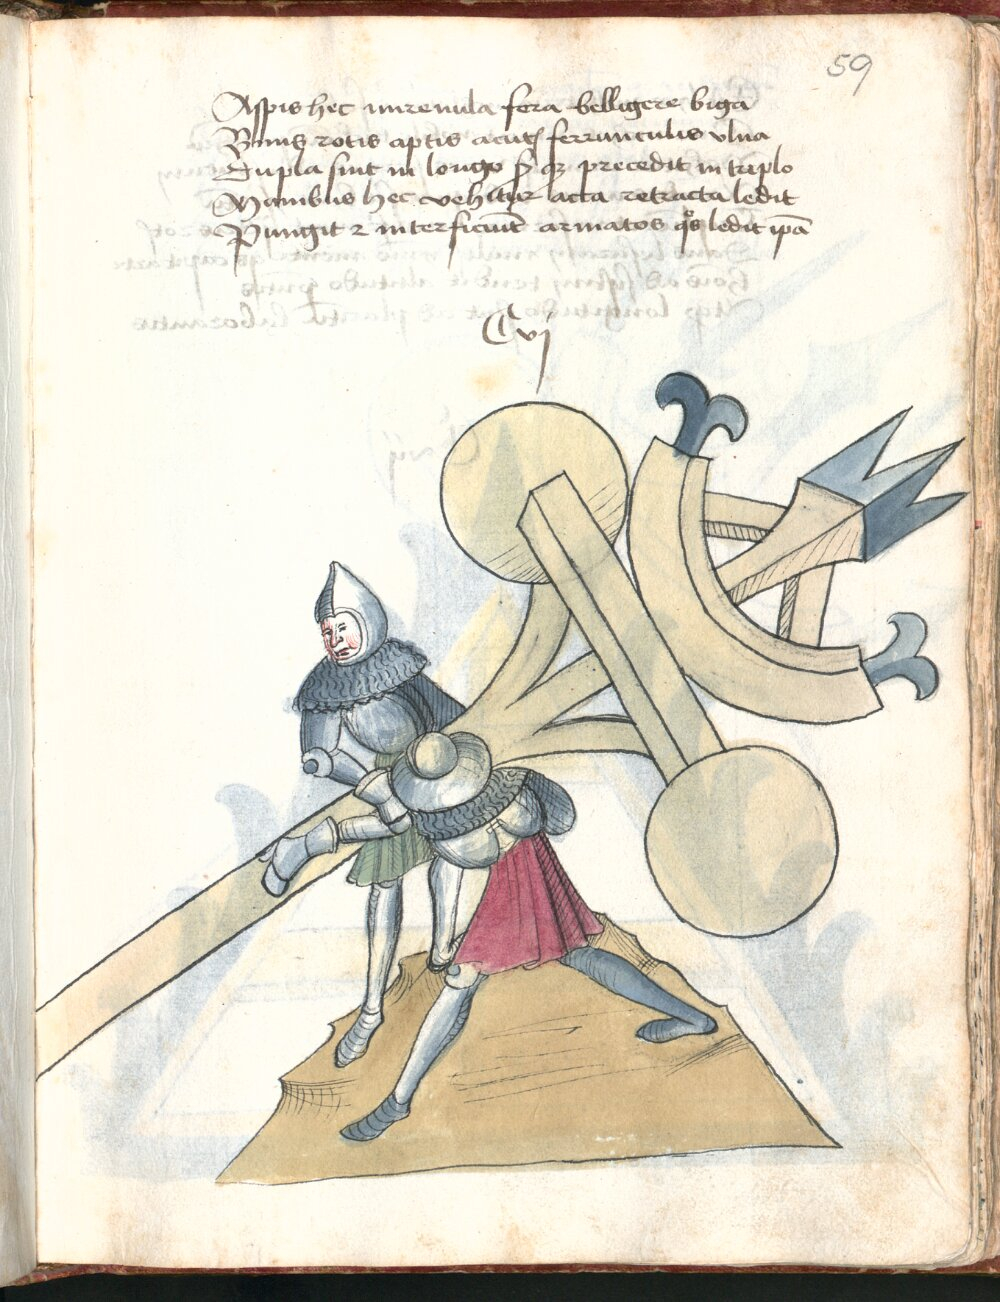 59
Aspis hec mirenula fera belligere biga
Binis rotis aptis acutis ferrunculis vlna
Dupla sint in longo sed que precedit in templo
Manibus hec vehitur acta retracta ledit
Pungit et interficiunt armatos quos ledit ipa
Cvj